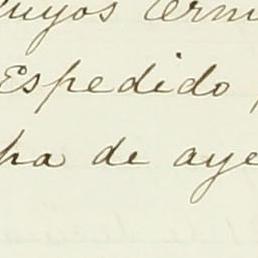 cuyos térmi
Espedido
ha de aye